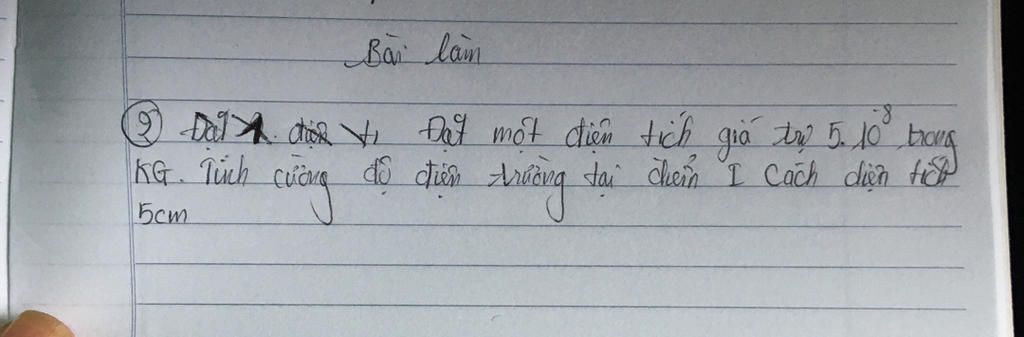 Bài làm
② Đặt một điện tích giá trị 5.10⁻⁸ trong
KG. Tính cường độ điện trường tại điểm I cách điện tích
5cm